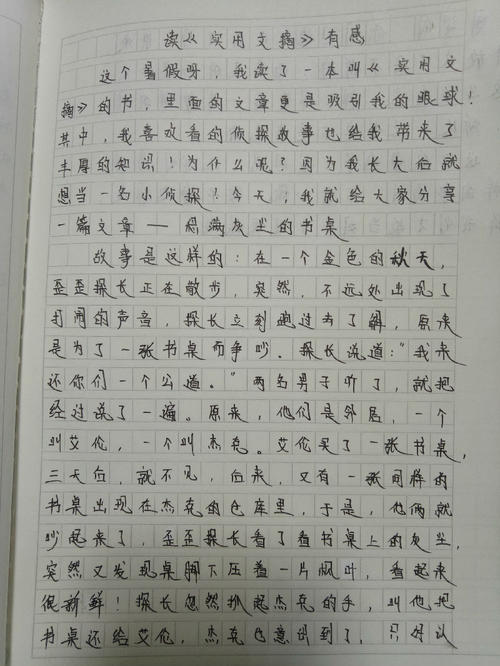 读《实用文摘》有感
这个暑假呀，我读了一本叫《实用文
摘》的书，里面的文章更是吸引我的眼球！
其中，我喜欢看的侦探故事也给我带来了
丰厚的知识！为什么呢？因为我长大后就
想当一名小侦探！今天，我就给大家分享
一篇文章——布满灰尘的书桌
故事是这样的：在一个金色的秋天，
歪歪探长正在散步，突然，不远处出现了
打闹的声音，探长立刻跑过去了解，原来
是为了一张书桌而争吵。探长说道：“我来
还你们一个公道。”两名男子听了，就把
经过说了一遍。原来，他们是邻居，一个
叫艾伦，一个叫杰克。艾伦买了一张书桌，
三天后，就不见，后来，又有一张同样的
书桌出现在杰克的仓库里，于是，他俩就
吵起来了，歪歪探长看了看书桌上的灰尘，
突然又发现桌脚下压着一片枫叶，看起来
很新鲜！探长忽然抓起杰克的手，叫他把
书桌还给艾伦，杰克也意识到了，只好认